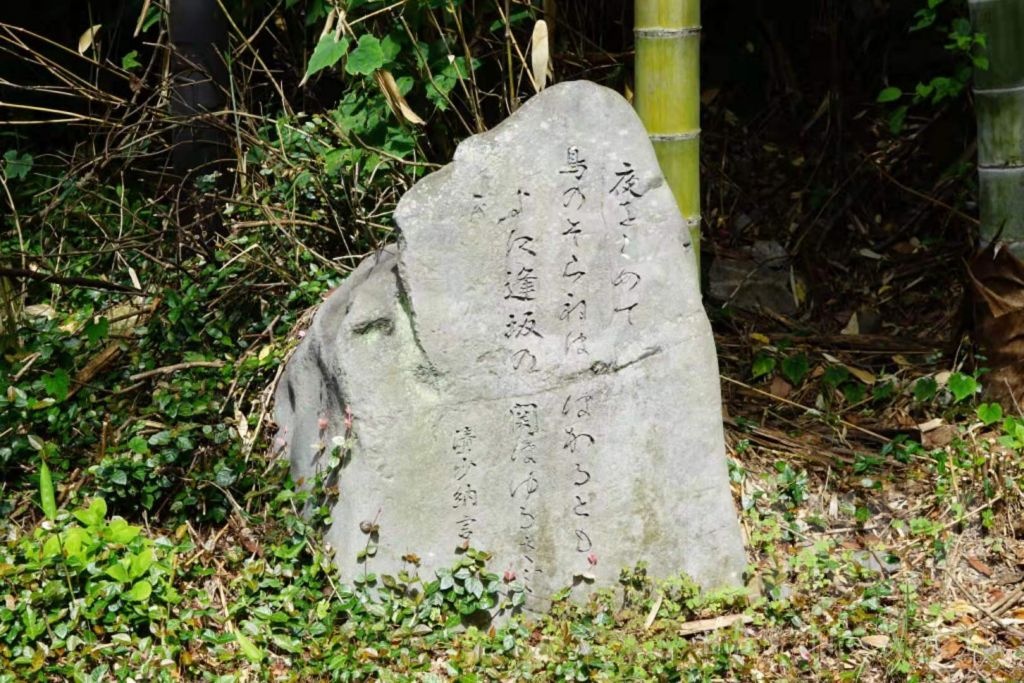 夜をこめて
鳥のそら祢ははかるとも
よに逢坂の関はゆるさし
清少納言